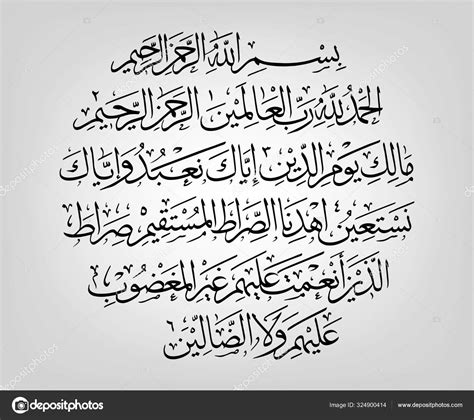 بِسْمِ اللَّهِ الرَّحْمَنِ الرَّحِيمِ
الْحَمْدُ لِلَّهِ رَبِّ الْعَالَمِينَ الرَّحْمَنِ الرَّحِيمِ ٢
مَالِكِ يَوْمِ الدِّينِ ٣ إِيَّاكَ نَعْبُدُ وَإِيَّاكَ
نَسْتَعِينُ اهْدِنَا الصِّرَاطَ الْمُسْتَقِيمَ صِرَاطَ
الَّذِينَ أَنْعَمْتَ عَلَيْهِمْ غَيْرِ الْمَغْضُوبِ
عَلَيْهِمْ وَلَا الضَّالِّينَ ٦
depositphotos
Image ID: 324900414
www.depositphotos.com